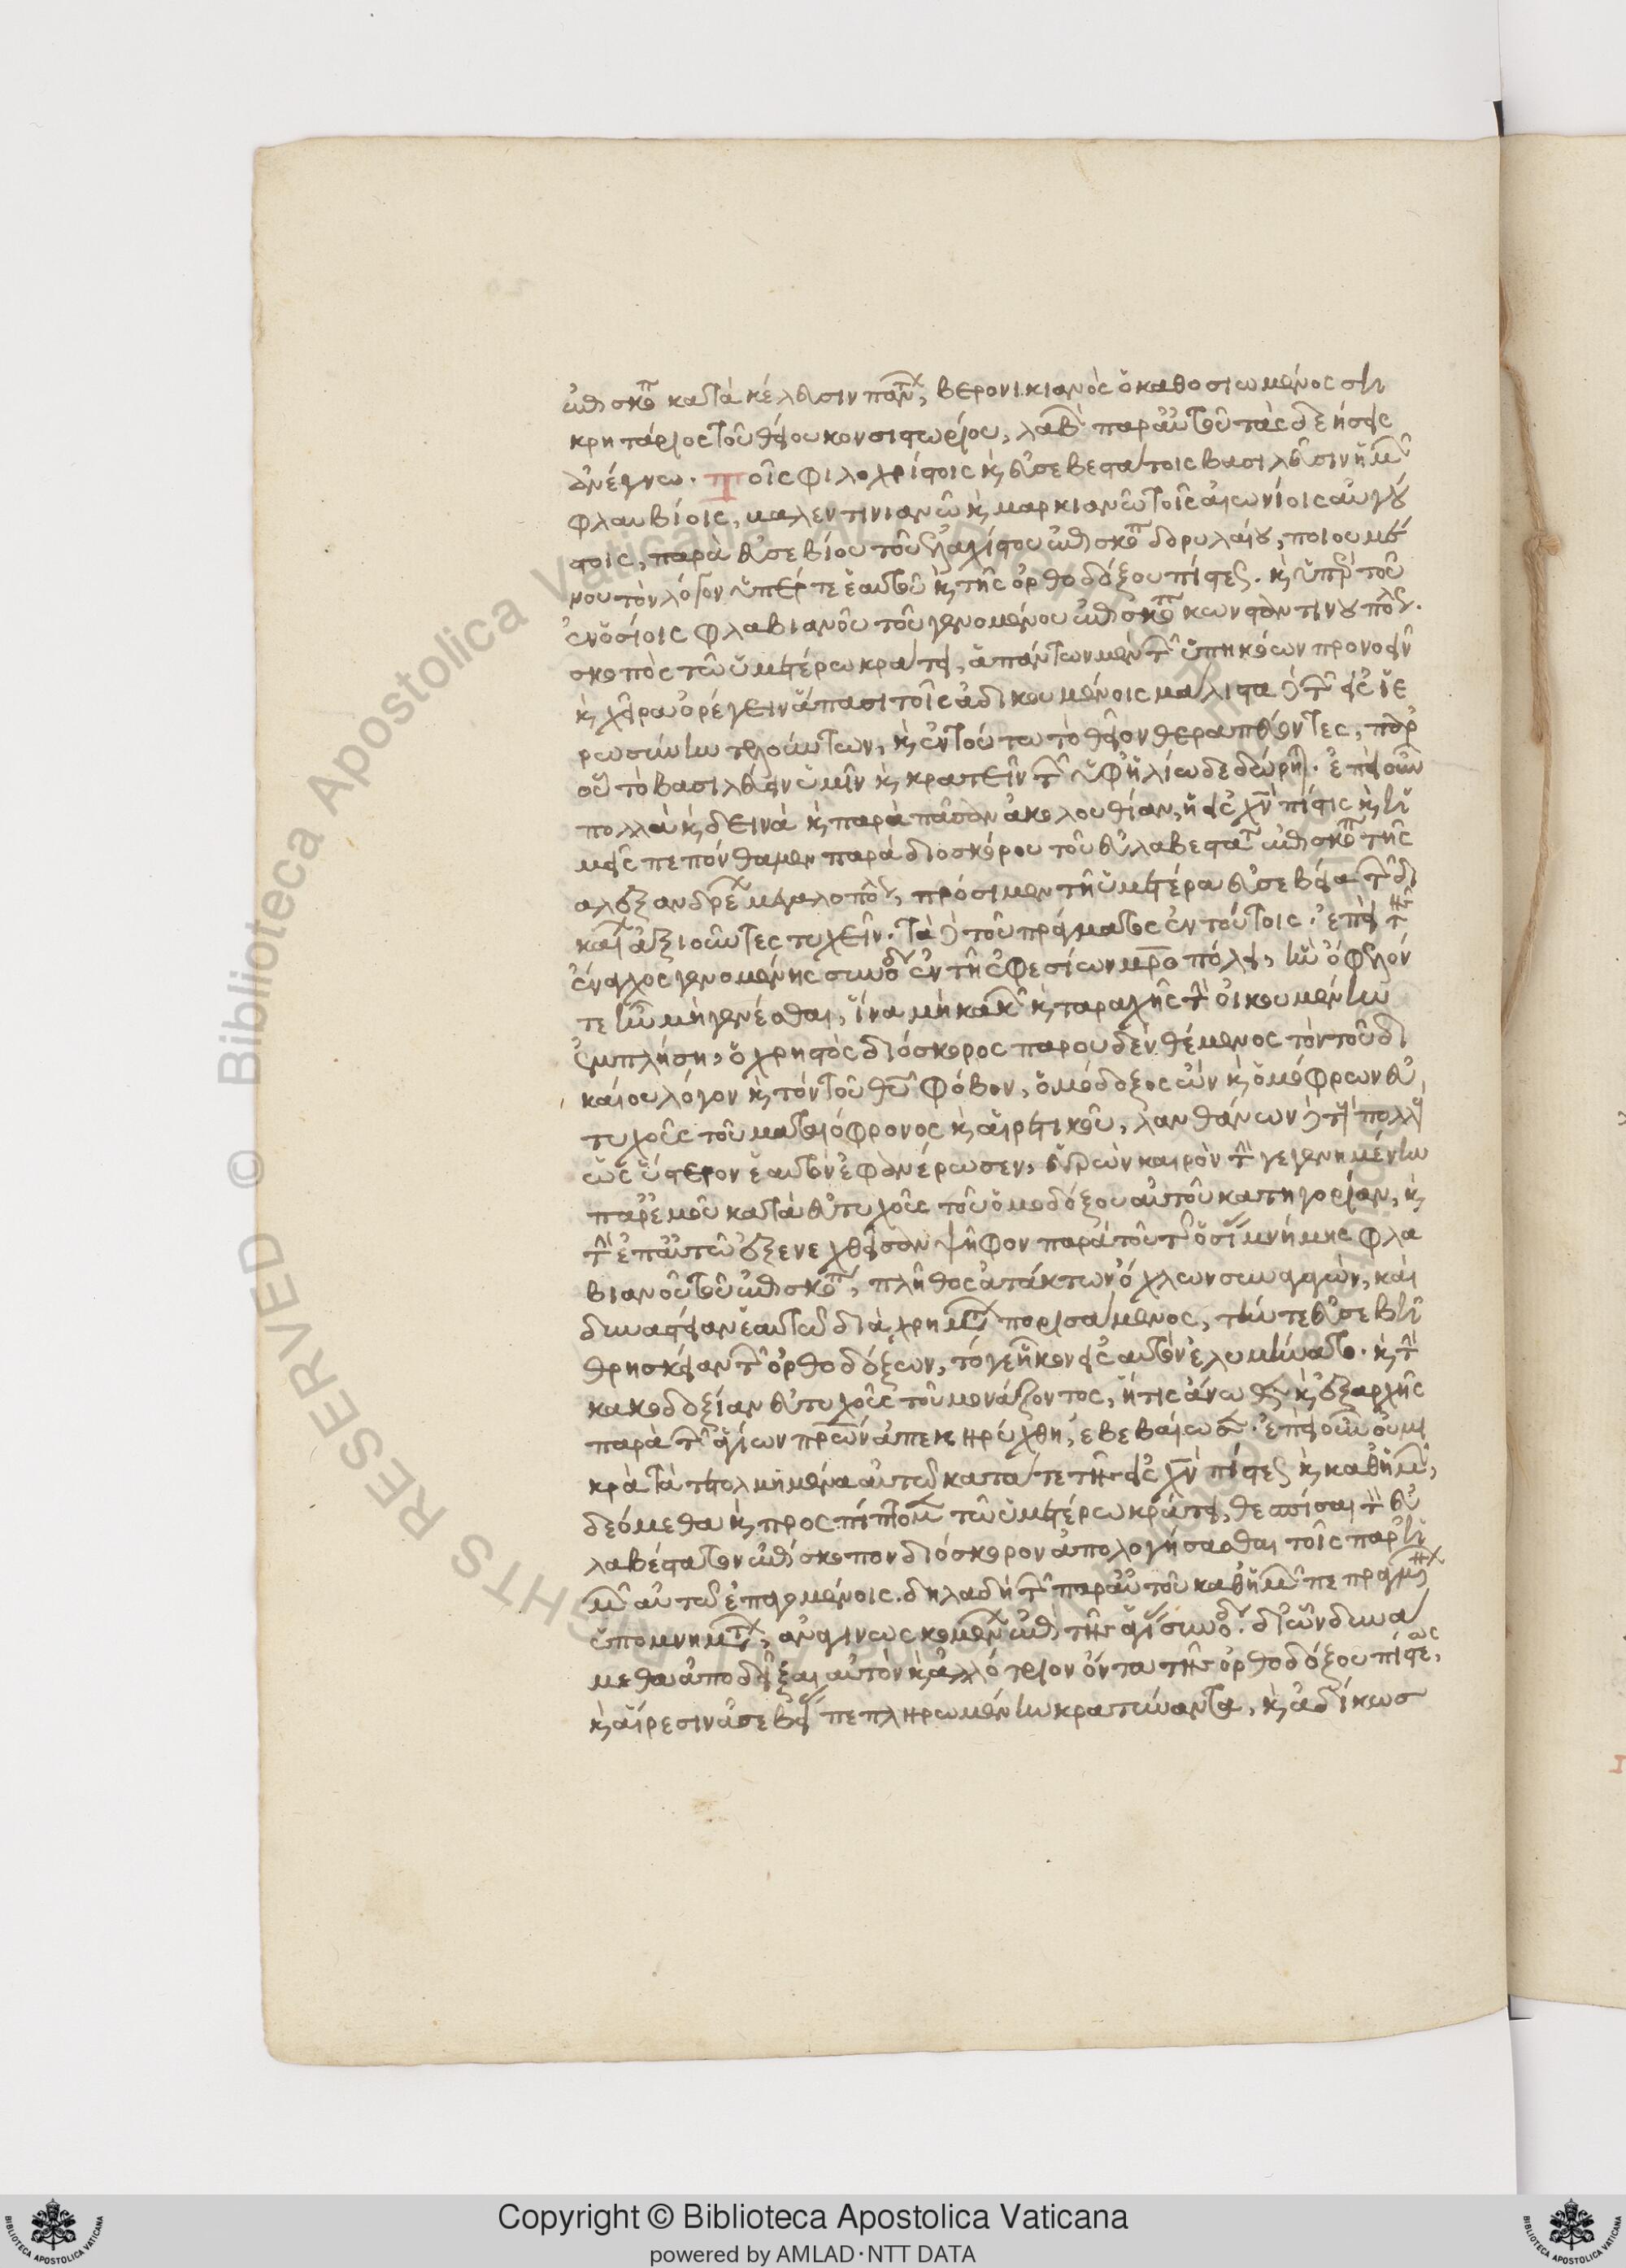 ἐπισκόπου κατὰ κέλευσιν πάντων, βερονικιανὸς ὁ καθοσιωμένος ση
κρητάριος τοῦ θείου κονσιστωρίου, λαβὼν παρ' αὐτοῦ τὰς δεήσεις
ἀνέγνω. Τοῖς φιλοχρίστοις καὶ εὐσεβεστάτοις βασιλεῦσιν ἡμῶν
φλαυβίοις, βαλεντινιανῶ καὶ μαρκιανῶ τοῖς αἰωνίοις αὐγού
στοις, παρὰ εὐσεβίου τοῦ ἐλαχίστου ἐπισκόπου δορυλαίου, ποιουμέ
νου τὸν λόγον ὑπέρ τε ἑαυτοῦ καὶ τῆς ὀρθοδόξου πίστεως. καὶ ὑπὲρ τοῦ
ἐν ὁσίοις φλαβιανοῦ τοῦ γενομένου ἐπισκόπου κωνσταντινουπόλεως.
σκοπὸς τῶ ὑμετέρω κράτει, ἁπάντων μὲν τῶν ὑπηκόων προνοεῖν
καὶ χεῖρα ὀρέγειν ἅπασι τοῖς ἀδικουμένοις μάλιστα δὲ τῶν εἰς ἱε
ρωσύνην τελούντων, καὶ ἐν τούτω τὸ θεῖον θεραπεύοντες, παρ'
οὗ τὸ βασιλεύειν ὑμῖν καὶ κρατεῖν τῶν ὑφ' ἡλίω δεδώρηται. ἐπεὶ οὖν
πολλὰ καὶ δεινὰ καὶ παρὰ πᾶσαν ἀκολουθίαν, ἡ εἰς χν πίστις καὶ ἡ
μεῖς πεπόνθαμεν παρὰ διοσκόρου τοῦ εὐλαβεστάτου ἐπισκόπου τῆς
αλεξανδρέων μεγαλοπόλεως, πρόσιμεν τῆ ὑμετέρα εὐσεβεία τῶν δι
καίων ἀξιοῦντες τυχεῖν. τὰ δὲ τοῦ πράγματος ἐν τούτοις. ἐπὶ τῆς
ἔναγχος γενομένης συνόδου ἐν τῆ ἐφεσίων μητροπόλει, ἣν ὄφελόν
τε ἦν μὴ γενέσθαι, ἵνα μὴ κακῶν καὶ ταραχῆς τὴν οἰκουμένην
ἐμπλήση, ὁ χρηστὸς διόσκορος παρ' οὐδὲν θέμενος τὸν τοῦ δι
καίου λόγον καὶ τὸν τοῦ θυ φόβον, ὁμόδοξος ὢν καὶ ὁμόφρων εὐ
τυχοῦς τοῦ ματαιόφρονος καὶ αἱρετικοῦ, λανθάνων δὲ τοὺς πολλοὺς
ὡς ὕστερον ἑαυτὸν ἐφανέρωσεν, εὑρὼν καιρὸν τὴν γεγενημένην
παρ' ἐμοῦ κατὰ εὐτυχοῦς τοῦ ὁμοδόξου αὐτοῦ κατηγορίαν, καὶ
τὴν ἐπ' αὐτῶ ἐξενεχθεῖσαν ψῆφον παρὰ τοῦ τῆς ὁσίας μνήμης φλα
βιανοῦ τοῦ ἐπισκόπου, πλῆθος ἀτάκτων ὄχλων συναγαγών, καὶ
δυναστείαν ἑαυτῶ διὰ χρημάτων πορισάμενος, τήν τε εὐσεβῆ
θρησκείαν τῶν ὀρθοδόξων, τό γε ἧκον εἰς αὐτὸν ἐλυμήνατο. καὶ τὴν
κακοδοξίαν εὐτυχοῦς τοῦ μονάζοντος, ἥτις ἄνωθεν καὶ ἐξαρχῆς
παρὰ τῶν ἁγίων πρων ἀπεκηρύχθη, ἐβεβαίωσεν. ἐπεὶ οὖν οὐ μι
κρὰ τὰ τετολμημένα αὐτῶ κατά τε τῆς εἰς χν πίστεως καὶ καθ' ἡμῶν,
δεόμεθα καὶ προσπίπτομεν τῶ ὑμετέρω κράτει, θεσπίσαι τὸν εὐ
λαβέστατον ἐπίσκοπον διόσκορον ἀπολογήσασθαι τοῖς παρ' ἡ
μῶν αὐτῶ ἐπαγομένοις. δηλαδὴ τῶν παρ' αὐτοῦ καθ' ἡμῶν πεπραγμένων
ὑπομνημάτων, ἀναγινωσκομένων ἐπὶ τῆς ἁγίας συνόδου. δι' ὧν δυνά
μεθα ἀποδεῖξαι αὐτὸν καὶ ἀλλότριον ὄντα τῆς ὀρθοδόξου πίστεως,
καὶ αἵρεσιν ἀσεβείας πεπληρωμένην κρατύναντα, καὶ ἀδίκως
Copyright © Biblioteca Apostolica Vaticana
powered by AMLAD·NTT DATA